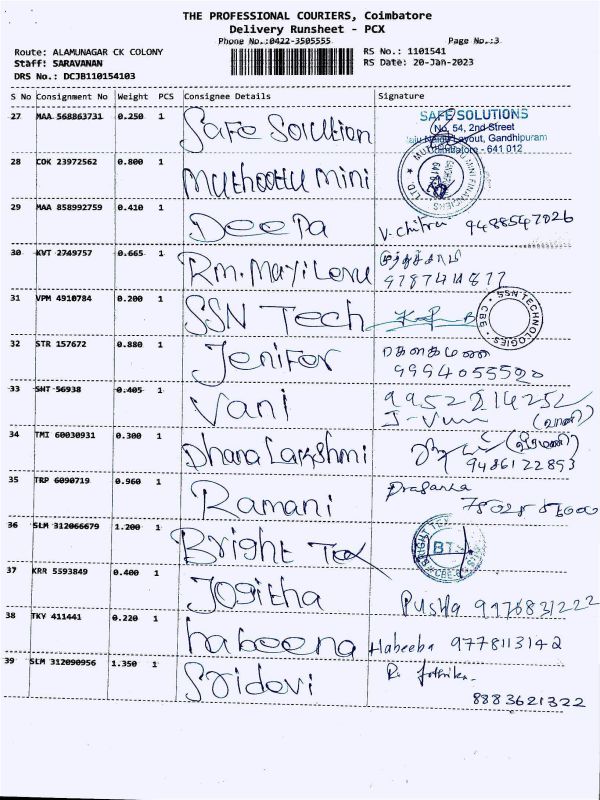 THE PROFESSIONAL COURIERS, Coimbatore
Delivery Runsheet - PCX
Phone No.:0422-3505555 Page No.:3
Route: ALAMUNAGAR CK COLONY RS No.: 1101541
Staff: SARAVANAN RS Date: 20-Jan-2023
DRS No.: DCJB110154103
S No Consignment No Weight PCS Consignee Details Signature
27 MAA 568863731 0.250 1 Safe Solution
SAFE SOLUTIONS
No. 54, 2nd Street
Layout, Gandhipuram
Coimbatore - 641 012
28 COK 23972562 0.800 1 Muthoottu mini
29 MAA 858992759 0.410 1 Deepa V. Chitra 9488547026
30 KVT 2749757 0.665 1 Rm. Mayilevu
31 VPM 4910784 0.200 1 SSN Tech
SSN TECHNOLOGIES * CBE *
32 STR 157672 0.880 1 Jenifer
9994055520
33 SNT 56938 0.405 1 Vani
(வாணி)
34 TMI 60030931 0.300 1 Dhana Lakshmi
9486122893
35 TRP 6090719 0.960 1 Ramani
36 SLM 312066679 1.200 1 Bright Tex
BRIGHT TEX
37 KRR 5593849 0.400 1 Jogitha Pushpa 9976831222
38 TKY 411441 0.220 1 habeena Habeeba 9778113142
39 SLM 312090956 1.350 1 Sridevi
8883621322